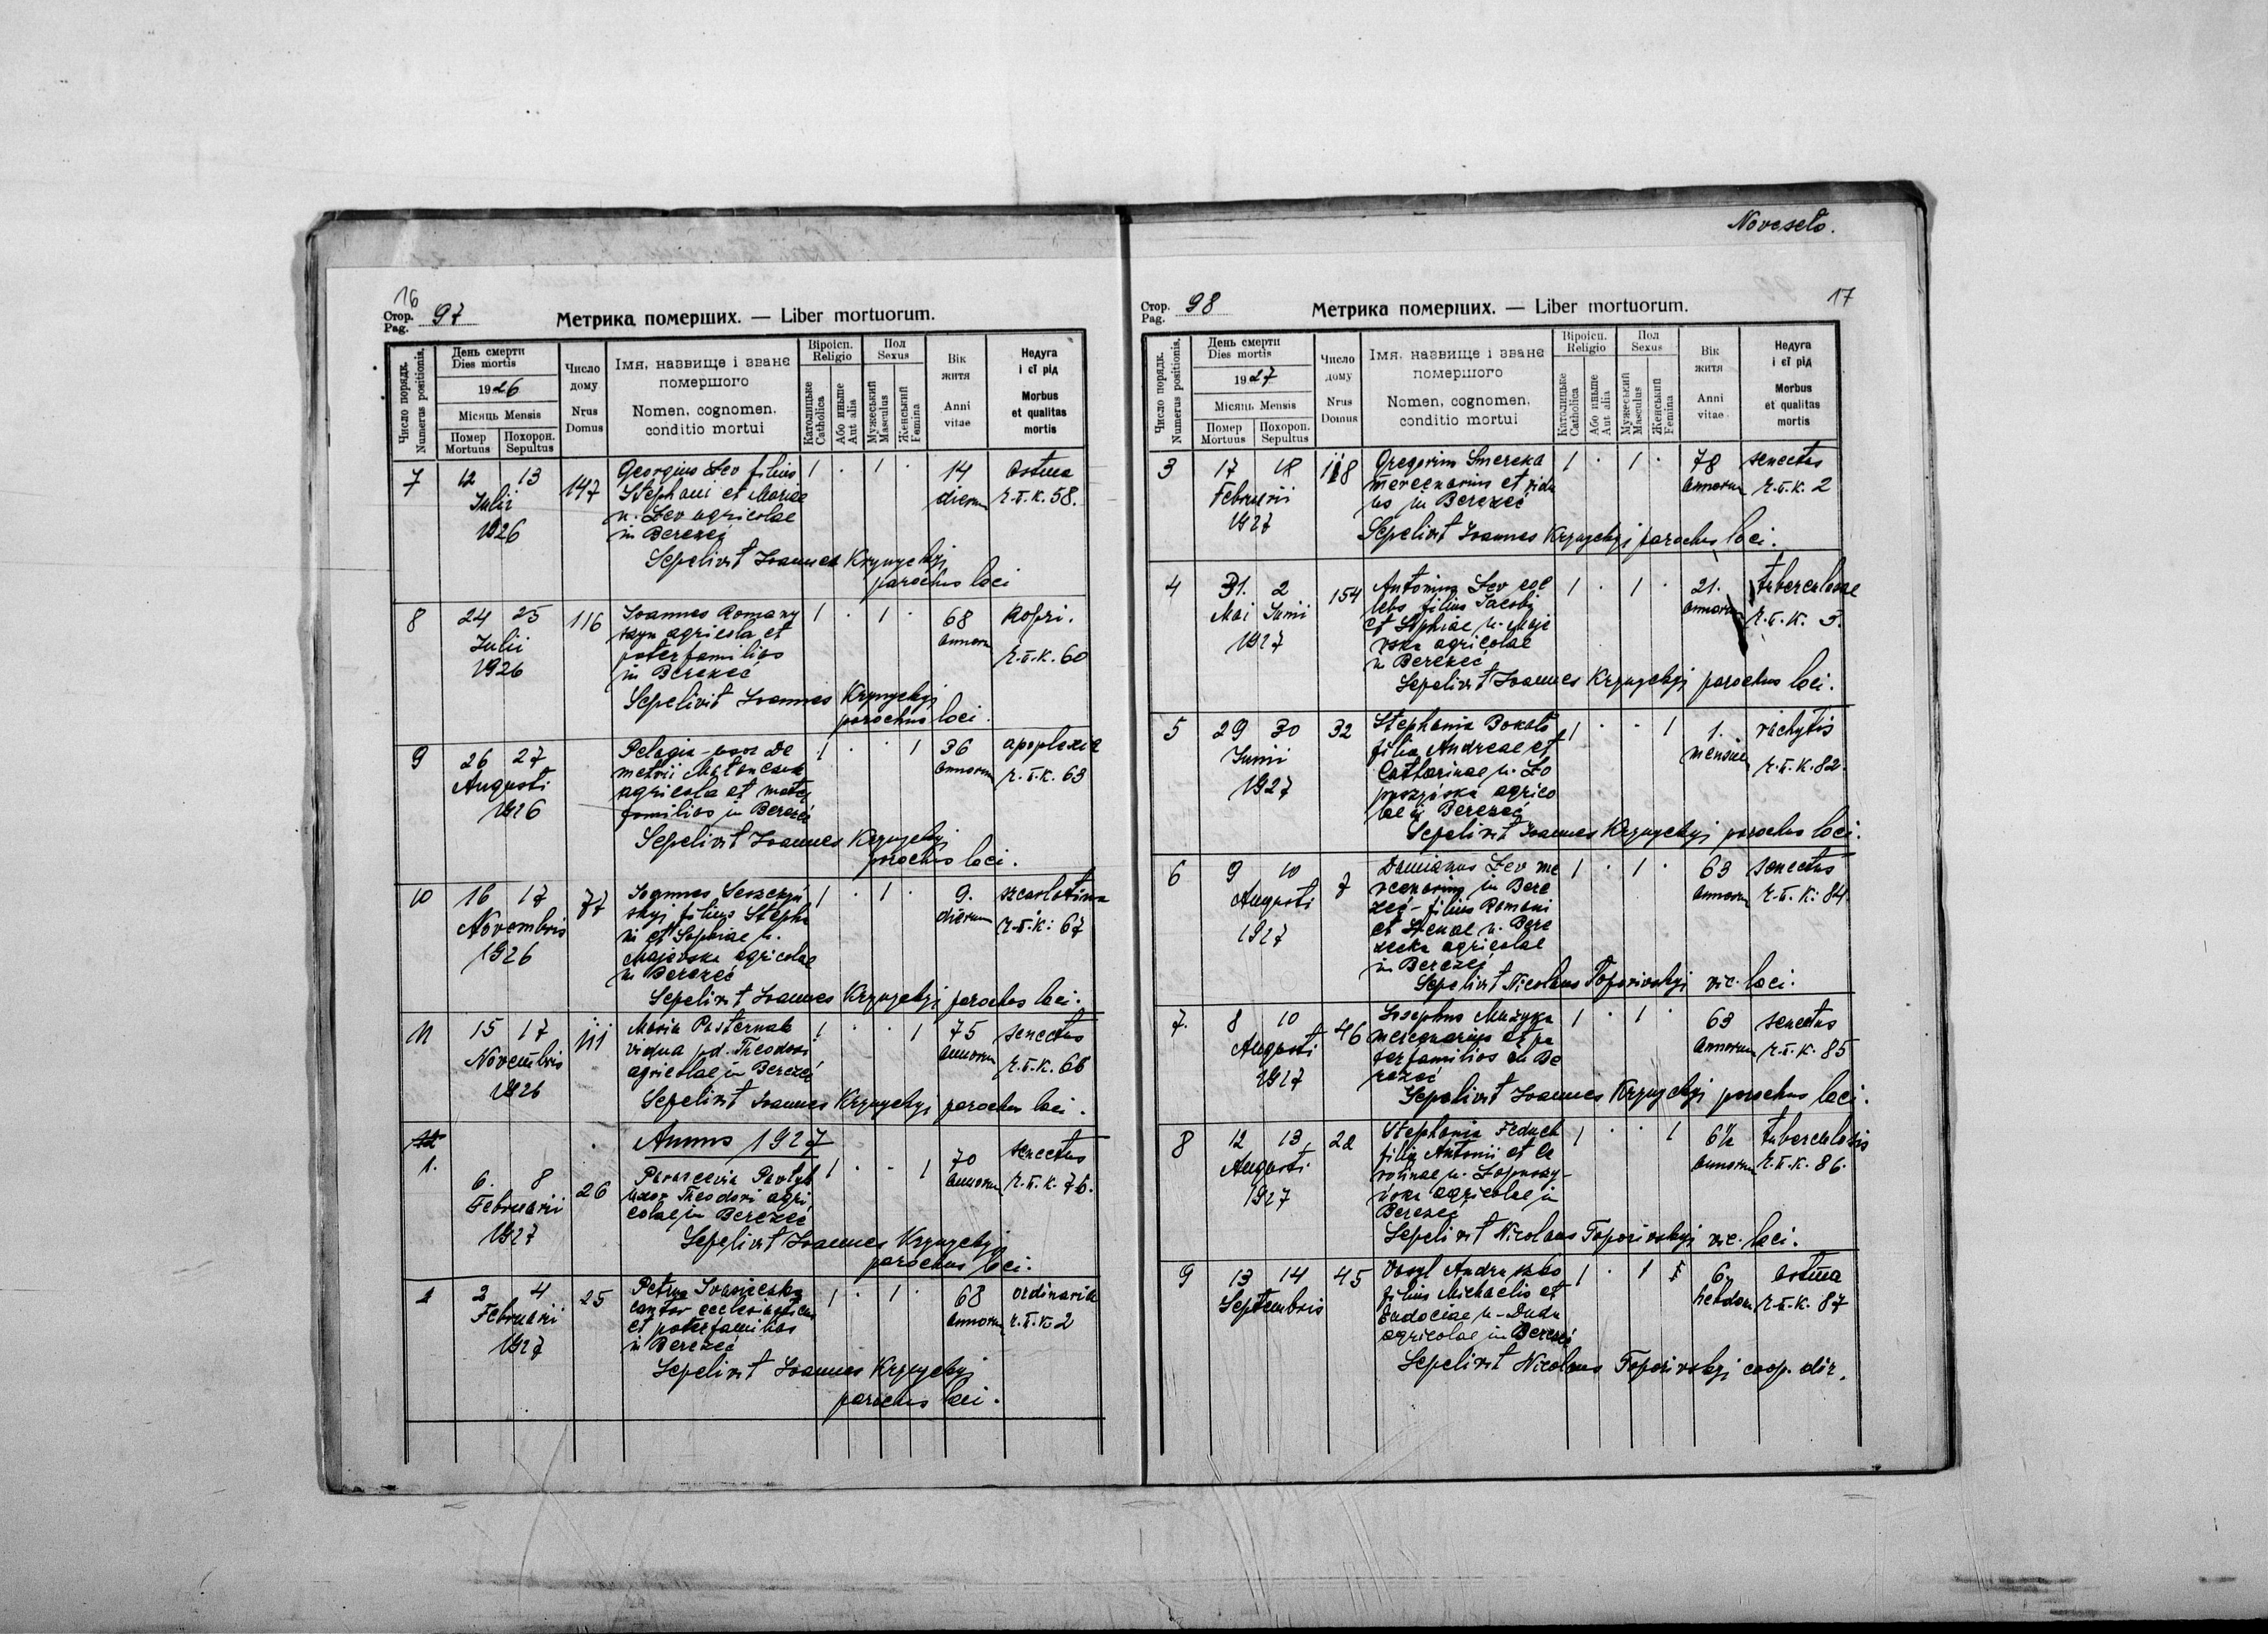 Novoseło.
16
Стор.
Pag. 97
Метрика померших. — Liber mortuorum.
Число порядк.
Numerus positionis.
День смерти
Dies mortis
1926
Місяць Mensis
Помер
Mortuus
Похорон.
Sepultus
Число
дому
Nrus
Domus
Імя, назвище і званє
помершого
Nomen, cognomen,
conditio mortui
Віроісп.
Religio
Католицьке
Catholica
Або иньше
Aut alia
Пол
Sexus
Мужеський
Masculus
Женський
Femina
Вік
житя
Anni
vitae
Недуга
і єї рід
Morbus
et qualitas
mortis
7 12 13 147 Georgius Lev filius 1 . 1 . 14 astma
Julii Stephani et Mariae dierum r.t.k. 58.
1926 n. Lev agricolae
in Berezeć
Sepelivit Joannes Krynyckyj
parochus loci
8 24 25 116 Joannes Romany 1 . 1 . 68
Julii szyn agricola et annorum
1926 paterfamilias r.t.k. 60
in Berezeć
Sepelivit Joannes Krynyckyj
parochus loci.
9 26 27 Pelagia uxor De 1 . . 1 36 apoplexia
Augusti metrii annorum r.t.k. 63
1926 agricola et mater
familias in Berezeć
Sepelivit Joannes Krynyckyj
parochus loci.
10 16 17 77 Joannes 1 . 1 . 9. scarlatina
Novembris skyj filius Stepha dierum r.t.k: 67
1926 ni et Sophiae n.
Majevska agricolae
in Berezeć
Sepelivit Joannes Krynyckyj parochus loci.
11 15 17 111 Maria Pasternak 1 . . 1 75 senectus
Novembris vidua p.d. Theodori annorum r.t.k. 68
1926 agricolae in Berezeć
Sepelivit Joannes Krynyckyj parochus loci.
12
Annus 1927
1. 6. 8 26 Parascevia Pavlyk 1 . . 1 70 senectus
Februarii uxor Theodori agri annorum r.t.k. 76.
1927 colae in Berezeć
Sepelivit Joannes Krynyckyj
parochus loci.
2 2 4 25 Petrus 1 . 1 . 68 ordinaria
Februarii cantor ecclesiasticus annorum r.t.k. 2
1927 et paterfamilias
in Berezeć
Sepelivit Joannes Krynyckyj
parochus loci.
17
Стор.
Pag. 98
Метрика померших. — Liber mortuorum.
Число порядк.
Numerus positionis.
День смерти
Dies mortis
1927
Місяць Mensis
Помер
Mortuus
Похорон.
Sepultus
Число
дому
Nrus
Domus
Імя, назвище і званє
помершого
Nomen, cognomen,
conditio mortui
Віроісп.
Religio
Католицьке
Catholica
Або иньше
Aut alia
Пол
Sexus
Мужеський
Masculus
Женський
Femina
Вік
житя
Anni
vitae
Недуга
і єї рід
Morbus
et qualitas
mortis
3 17 18 118 Gregorius Smereka 1 . 1 . 78 senectus
Februarii mercenarius et vidu annorum r.t.k. 2
1927 us in Berezeć
Sepelivit Joannes Krynyckyj parochus loci.
4 31. 2 154 Antonius Lev coe 1 . 1 . 21. tuberculosae
Mai Junii lebs filius Jacobi annorum r.t.k. 3.
1927 et Sophiae n. Maje
vska agricolae
in Berezeć
Sepelivit Joannes Krynyckyj parochus loci.
5 29 30 32 Stephania Bokalo 1 . . 1 1. rachytis
Junii filia Andreae et mensae r.t.k. 82.
1927 Catharinae n. Lo
puszjńska agrico
lae in Berezeć
Sepelivit Joannes Krynyckyj parochus loci.
6 9 10 7 Damianus Lev me 1 . 1 . 63 senectus
Augusti rcenarius in Bere annorum r.t.k: 84.
1927 zeć - filius Romani
et n. Bere
zecka agricolae
in Berezeć
Sepelivit Nicolaus Toporivskyj vic. loci.
7. 8 10 46 Josephus Muzyka 1 . 1 . 63 senectus
Augusti mercenarius et pa annorum r.t.k. 85
1927 terfamilias in Be
rezeć
Sepelivit Joannes Krynyckyj parochus loci.
8 12 13 22 Stephania Feduch 1 . . 1 6½ tuberculosis
Augusti filia Antonii et Ca annorum r.t.k. 86.
1927 rolinae n. Lopuszy-
ńska agricolae in
Berezeć
Sepelivit Nicolaus Toporivskyj vic. loci.
9 13 14 45 Vasyl Andruszko 1 . 1 6 astma
Septembris filius Michaelis et hebdom. r.t.k. 87
Eudociae n. Duda
agricolae in Berezeć
Sepelivit Nicolaus Toporivskyj coop. dir.